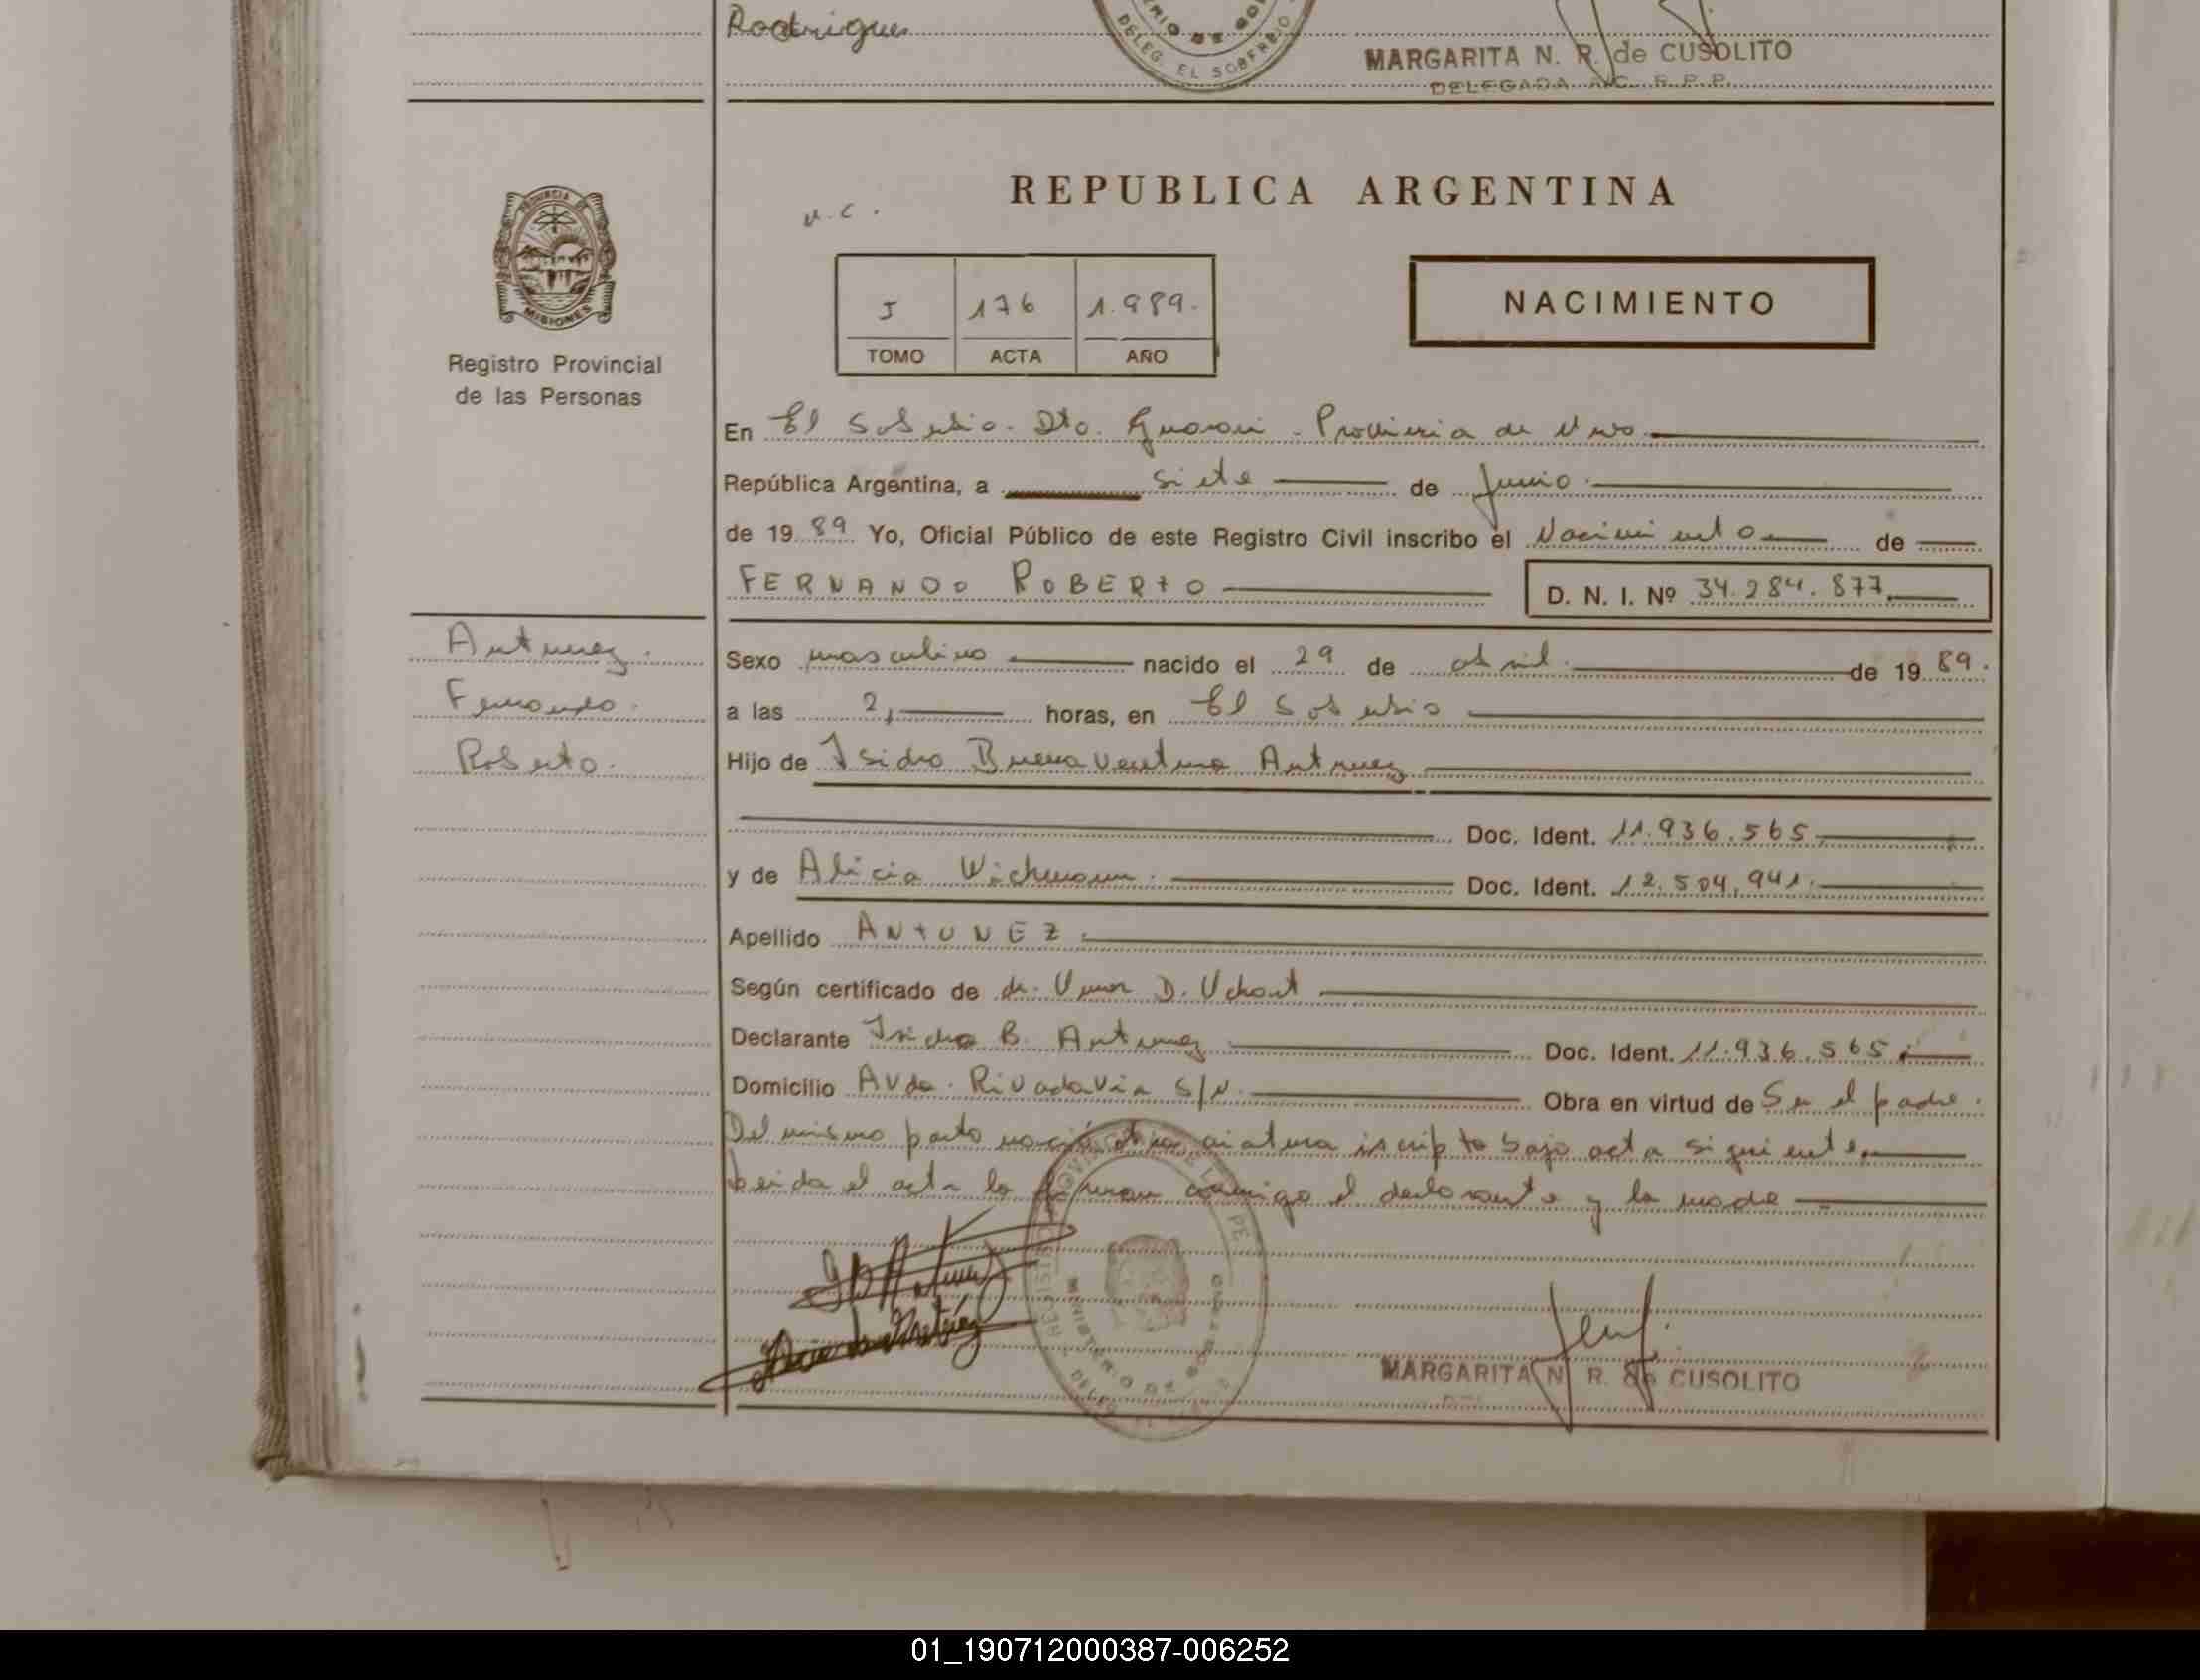 Rodrigues
DELEG. EL SOBERBIO
MARGARITA N. R. de CUSOLITO
DELEGADA R.P.P.
PROVINCIA DE
MISIONES
Registro Provincial
de las Personas
REPUBLICA ARGENTINA
J 176 1.989.
TOMO ACTA AÑO
NACIMIENTO
En El Soberbio. Dto. Guarani - Provincia de Mnes
República Argentina, a siete de Junio.
de 1989 Yo, Oficial Público de este Registro Civil inscribo el Nacimiento de
FERNANDO ROBERTO
D. N. I. Nº 34.284.877
Antunez.
Fernando.
Roberto.
Sexo masculino nacido el 29 de abril. de 1989.
a las 2, horas, en El Soberbio
Hijo de Isidro Buenaventura Antunez
Doc. Ident. 11.936.565
y de Alicia Wichmann. Doc. Ident. 12.504.941.
Apellido ANTUNEZ.
Según certificado de dr. D.
Declarante Isidro B. Antunez Doc. Ident. 11.936.565
Domicilio Avda. Rivadavia S/N. Obra en virtud de Ser el padre.
Del mismo parto nació otra criatura iscripto bajo acta siguiente,
leida el acta la firman conmigo el declarante y la madre
MINISTERIO DE GOBIERNO
MARGARITA N. R. de CUSOLITO
01_190712000387-006252